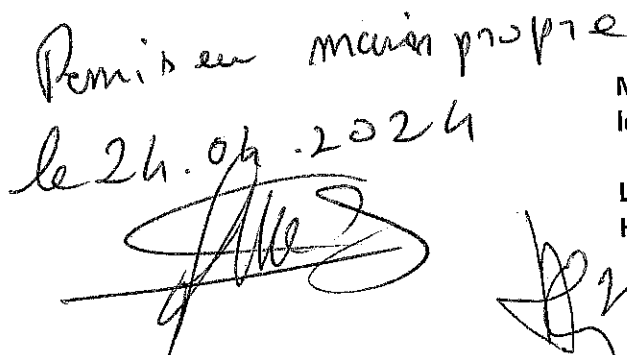 Remis en main propre
le 24.04.2024